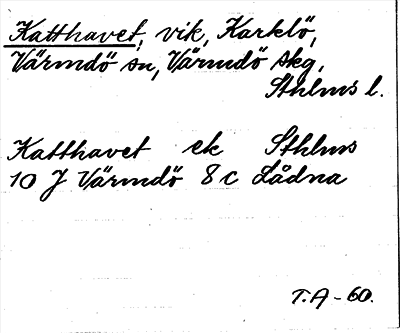 Katthavet, vik, Karklö,
Värmdö sn, Värmdö skg,
Sthlms l.
Katthavet ek Sthlms
10 J Värmdö 8 c Lådna
T.A - 60.